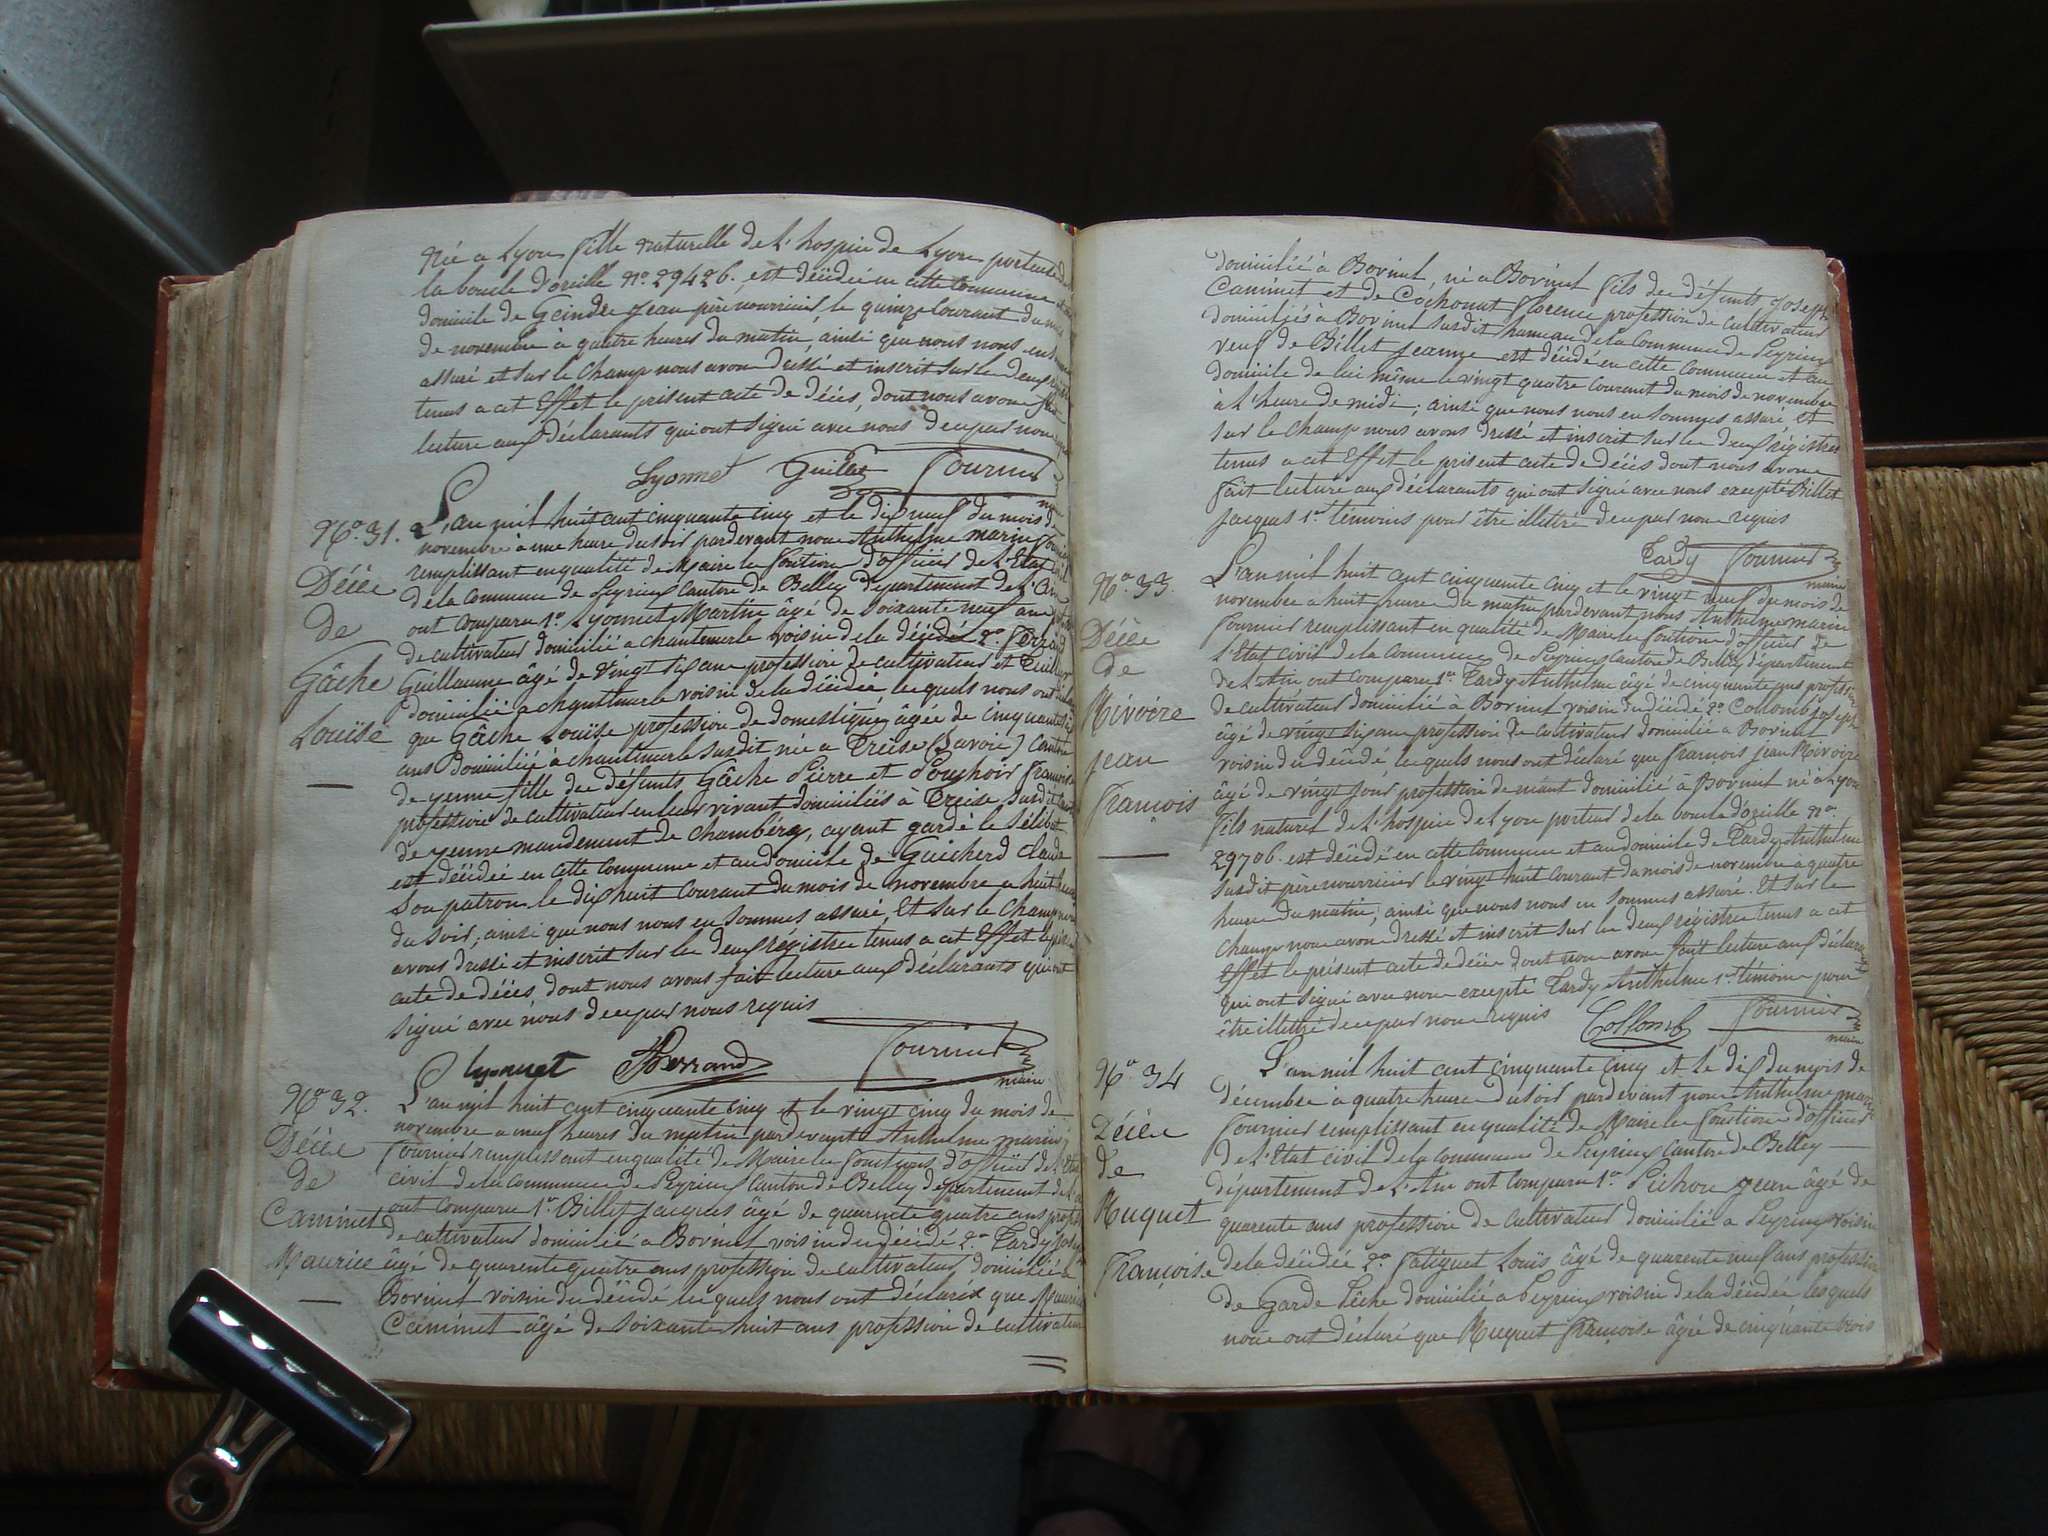 Née a Lyon fille naturelle de L'hospice de Lyon portant
la boucle d'oreille N° 29426. est décédée en cette Commune
domicile de Geindre Jean père nourricier le quinze Courant du mois
de novembre à quatre heures du matin, ainsi que nous nous en
assuré et sur le Champ nous avons dressé et inscrit sur les deux
tenus a cet Effet le présent acte de décès, dont nous avons fait
lecture aux déclarants qui ont signé avec nous de ce par nous
Lyonnet Guillet Fournier
N° 31.
Décès
de
Gâche
Louise
L'an mil huit cent cinquante cinq et le dix neuf du mois de
novembre à une heure du soir pardevant nous Anthelme marin
remplissant en qualité de Maire les fonctions d'officier de L'Etat
de la Commune de Peyrieu Canton de Belley département de L'Ain
ont comparu 1° Lyonnet Martin âgé de soixante neuf ans
de cultivateur domicilié a chantemerle voisin de la décédée 2° Ferrand
Guillaume âgé de vingt six ans profession de cultivateur et
domicilié a chantemerle voisin de la décédée lesquels nous ont
que Gâche Louise profession de domestique âgée de cinquante
ans domiciliée à chantemerle susdit née a Treise (Savoie) Canton
de yenne fille des défunts Gâche Pierre et Françoise
profession de cultivateur en leur vivant domiciliés à Treise susdit
de yenne mandement de Chambéry, ayant gardé le Célibat
est décédée en cette Commune et au domicile de Guicherd Claude
Son patron le dix huit Courant du mois de novembre a huit heures
du soir, ainsi que nous nous en sommes assuré, Et sur le Champ
avons dressé et inscrit sur les deux régistres tenus a cet Effet le
acte de décès, dont nous avons fait lecture aux déclarants qui ont
signé avec nous de ce par nous requis
Lyonnet Ferrand Fournier
maire
N° 32.
Décès
de
Caminet
Maurice
L'an mil huit cent cinquante cinq et le vingt cinq du mois de
novembre a neuf heures du matin pardevant Anthelme marin
Fournier remplissant en qualité de Maire les fonctions d'officier de L'Etat
civil de la Commune de Peyrieu Canton de Belley département de L'
ont comparu 1° Billet Jacques âgé de quarante quatre ans
de cultivateur domicilié a Bovinel voisin du décédé 2° Tardy
âgé de quarente quatre ans profession de cultivateur domicilié à
Bovinel voisin du décédé lesquels nous ont déclaré que Maurice
Caminet âgé de soixante huit ans profession de cultivateur
domicilié à Bovinel, né a Bovinel fils des défunts Joseph
Caminet et de Cochonat Florence profession de cultivateur
domiciliés à Bovinel susdit hameau de la Commune de Peyrieu
veuf de Billet Jeanne est décédé en cette commune et au
domicile de lui même le vingt quatre courant du mois de novembre
à L'heure de midi; ainsi que nous nous en sommes assuré Et
sur le champ nous avons dressé et inscrit sur les deux régistres
tenus a cet Effet le présent acte de décès dont nous avons
fait lecture aux déclarants qui ont signé avec nous excepté Billet
Jacques 1er témoins pour être illettré de ce par nous requis
Tardy Fournier
maire
N° 33.
Décès
de
Mivoire
jean
françois
L'an mil huit cent cinquante cinq et le vingt neuf du mois de
novembre a huit heures du matin pardevant nous Anthelme marin
Fournier remplissant en qualité de Maire les fonctions d'officier de
L'Etat civil de la Commune de Peyrieu Canton de Belley département
de L'Ain ont comparu 1° Tardy Anthelme âgé de cinquante ans profession
de cultivateur domicilié à Bovinel voisin du décédé 2° Collomb joseph
âgé de vingt six ans profession de cultivateur domicilié a Bovinel
voisin du décédé lesquels nous ont déclaré que françois jean Mivoire
âgé de vingt jours profession de néant domicilié à Bovinel né à Lyon
fils naturel de L'hospice de Lyon porteur de la boucle d'oreille N°
29706. est décédé en cette Commune et au domicile de Tardy Anthelme
susdit père nourricier le vingt huit courant du mois de novembre a quatre
heures du matin, ainsi que nous nous en sommes assuré. Et sur le
champ nous avons dressé et inscrit sur les deux régistres tenus a cet
Effet le présent acte de décès dont nous avons fait lecture aux déclarants
qui ont signé avec nous excepté Tardy Anthelme 1er témoins pour
être illettré de ce par nous requis
Collomb Fournier
maire
N° 34
Décès
de
Muquet
françoise
L'an mil huit cent cinquante cinq et le dix du mois de
décembre a quatre heures du soir pardevant nous Anthelme marin
Fournier remplissant en qualité de Maire les fonctions d'officier
de L'Etat civil de la Commune de Peyrieu Canton de Belley
département de L'Ain ont comparu 1° Pichon Jean âgé de
quarente ans profession de cultivateur domicilié a Peyrieu voisin
de la décédée 2° Fatiguet Louis âgé de quarente neuf ans profession
de Garde Pêche domicilié a Peyrieu voisin de la décédée lesquels
nous ont déclaré que Muquet françoise âgée de cinquante trois